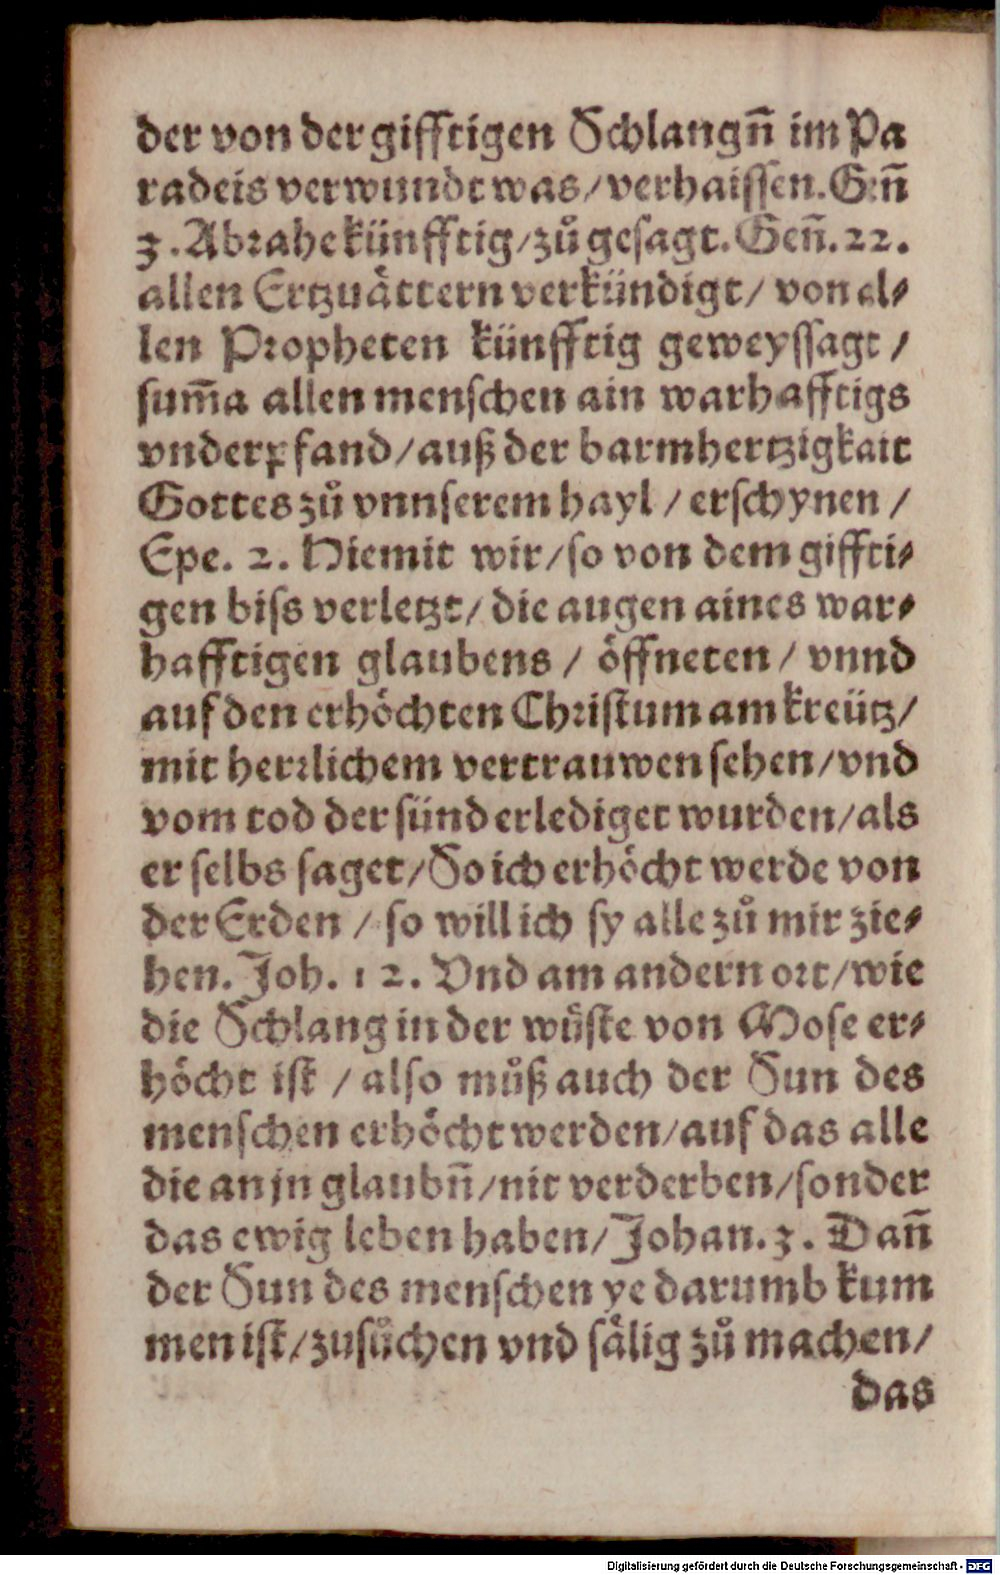 der von der gifftigen Schlangñ im Pa
radeis verwundt was/verhaissen. Geñ
3. Abrahe künfftig/zů gesagt. Geñ. 22.
allen Ertzuättern verkündigt/ von al⸗
len Propheten künfftig geweyssagt /
sum̃a allen menschen ain warhafftigs
vnderpfand/auß der barmhertzigkait
Gottes zů vnnserem hayl / erschynen /
Epe. 2. Hiemit wir/so von dem giffti⸗
gen biss verletzt/ die augen aines war⸗
hafftigen glaubens / öffneten/ vnnd
auf den erhöchten Christum am kreütz/
mit herrlichem vertrauwen sehen/vnd
vom tod der sünd erlediget wurden/als
er selbs saget/So ich erhöcht werde von
der Erden / so will ich sy alle zů mir zie⸗
hen. Joh. 12. Vnd am andern ort/wie
die Schlang in der wüste von Mose er⸗
höcht ist / also můß auch der Sun des
menschen erhöcht werden/auf das alle
die an jn glaubñ/nit verderben/sonder
das ewig leben haben/ Johan. 3. Dañ
der Sun des menschen ye darumb kum
men ist/zusůchen vnd sälig zů machen/
das
Digitalisierung gefördert durch die Deutsche Forschungsgemeinschaft - DFG